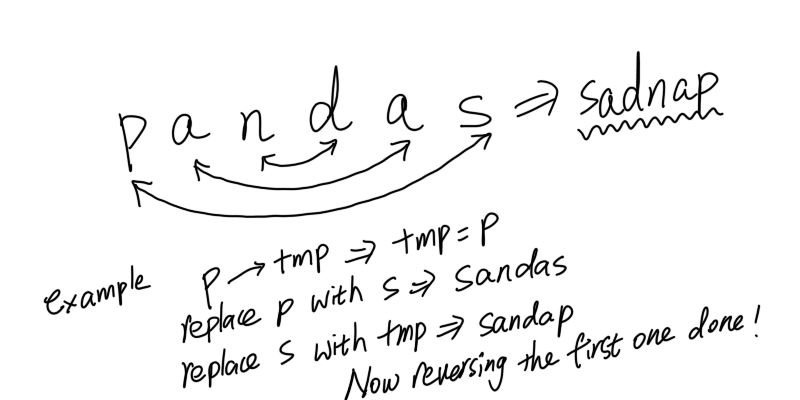 p a n d a s ⇒ sadnap
example p → tmp ⇒ tmp = p
replace p with s ⇒ sandas
replace s with tmp ⇒ sandap
Now reversing the first one done!